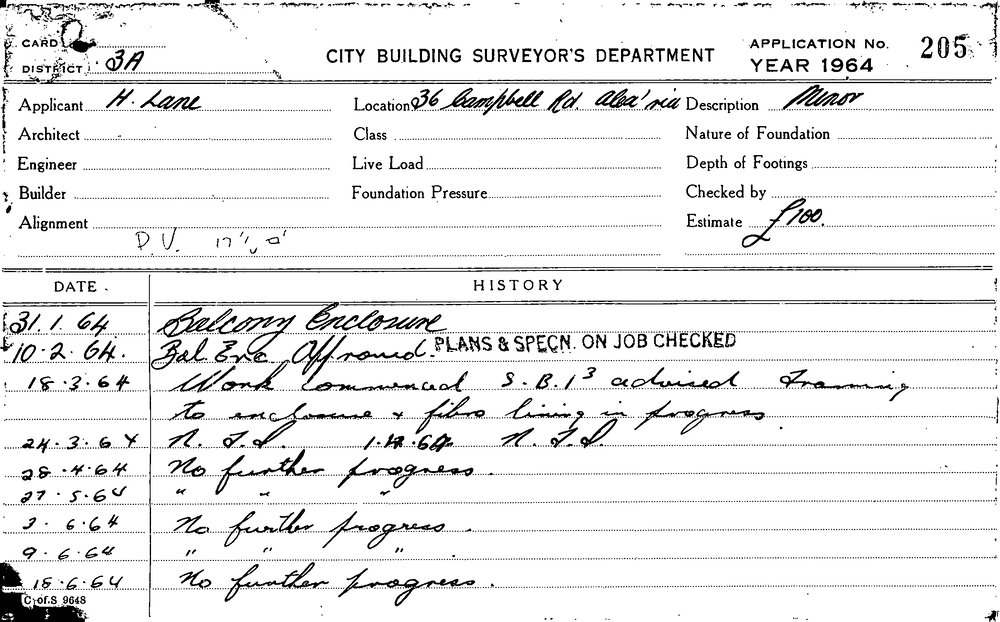 CARD
DISTRICT 3A
CITY BUILDING SURVEYOR'S DEPARTMENT
APPLICATION No. 205
YEAR 1964
Applicant H. Lane Location 36 Campbell Rd. Alex'ria Description Minor
Architect Class Nature of Foundation
Engineer Live Load Depth of Footings
Builder Foundation Pressure Checked by
Alignment Estimate £100.
P.V.
DATE . HISTORY
31.1.64 Balcony Enclosure
10.2.64. Bal Enc Approved. PLANS & SPECN. ON JOB CHECKED
18.3.64 Work commenced S.B.I3 advised Framing
to enclosure & fibro lining in progress
24.3.64 N.F.P. 1.4.64 N.F.P.
28.4.64 No further progress.
27.5.64 " " "
3.6.64 No further progress.
9.6.64 " " "
18.6.64 No further progress.
C.of.S 9648